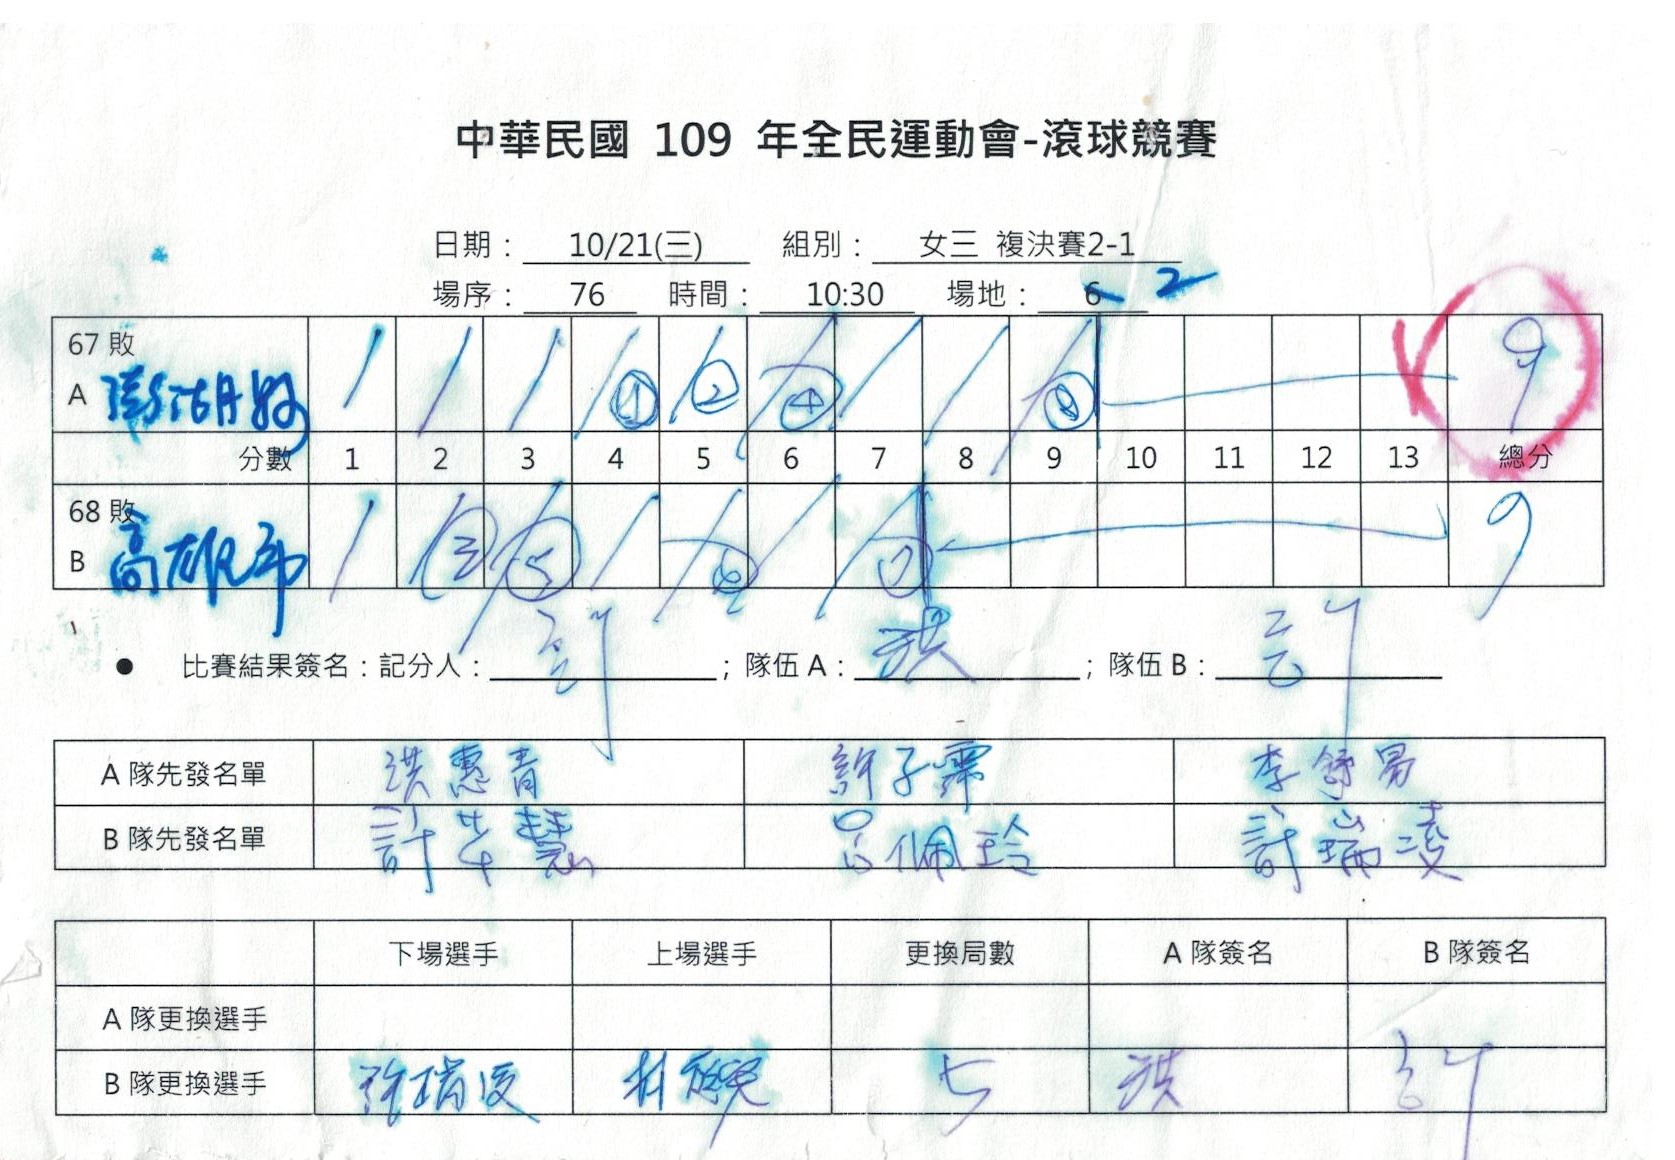 中華民國 109 年全民運動會-滾球競賽
日期： 10/21(三) 組別： 女三 複決賽2-1
場序： 76 時間： 10:30 場地： 6 2
67 敗
A 澎湖縣 / / / / ① / ② / ④ / / / 9
分數 1 2 3 4 5 6 7 8 9 10 11 12 13 總分
68 敗
B 高雄市 / / ③ / ⑤ / / ⑥ / / ⑦ 9
● 比賽結果簽名：記分人： 許 ；隊伍 A： 洪 ；隊伍 B： 許
A 隊先發名單 洪惠青 許子霈 李舒易
B 隊先發名單 許牛慧 呂佩玲 許瑞凌
下場選手 上場選手 更換局數 A 隊簽名 B 隊簽名
A 隊更換選手
B 隊更換選手 林 5 洪 許